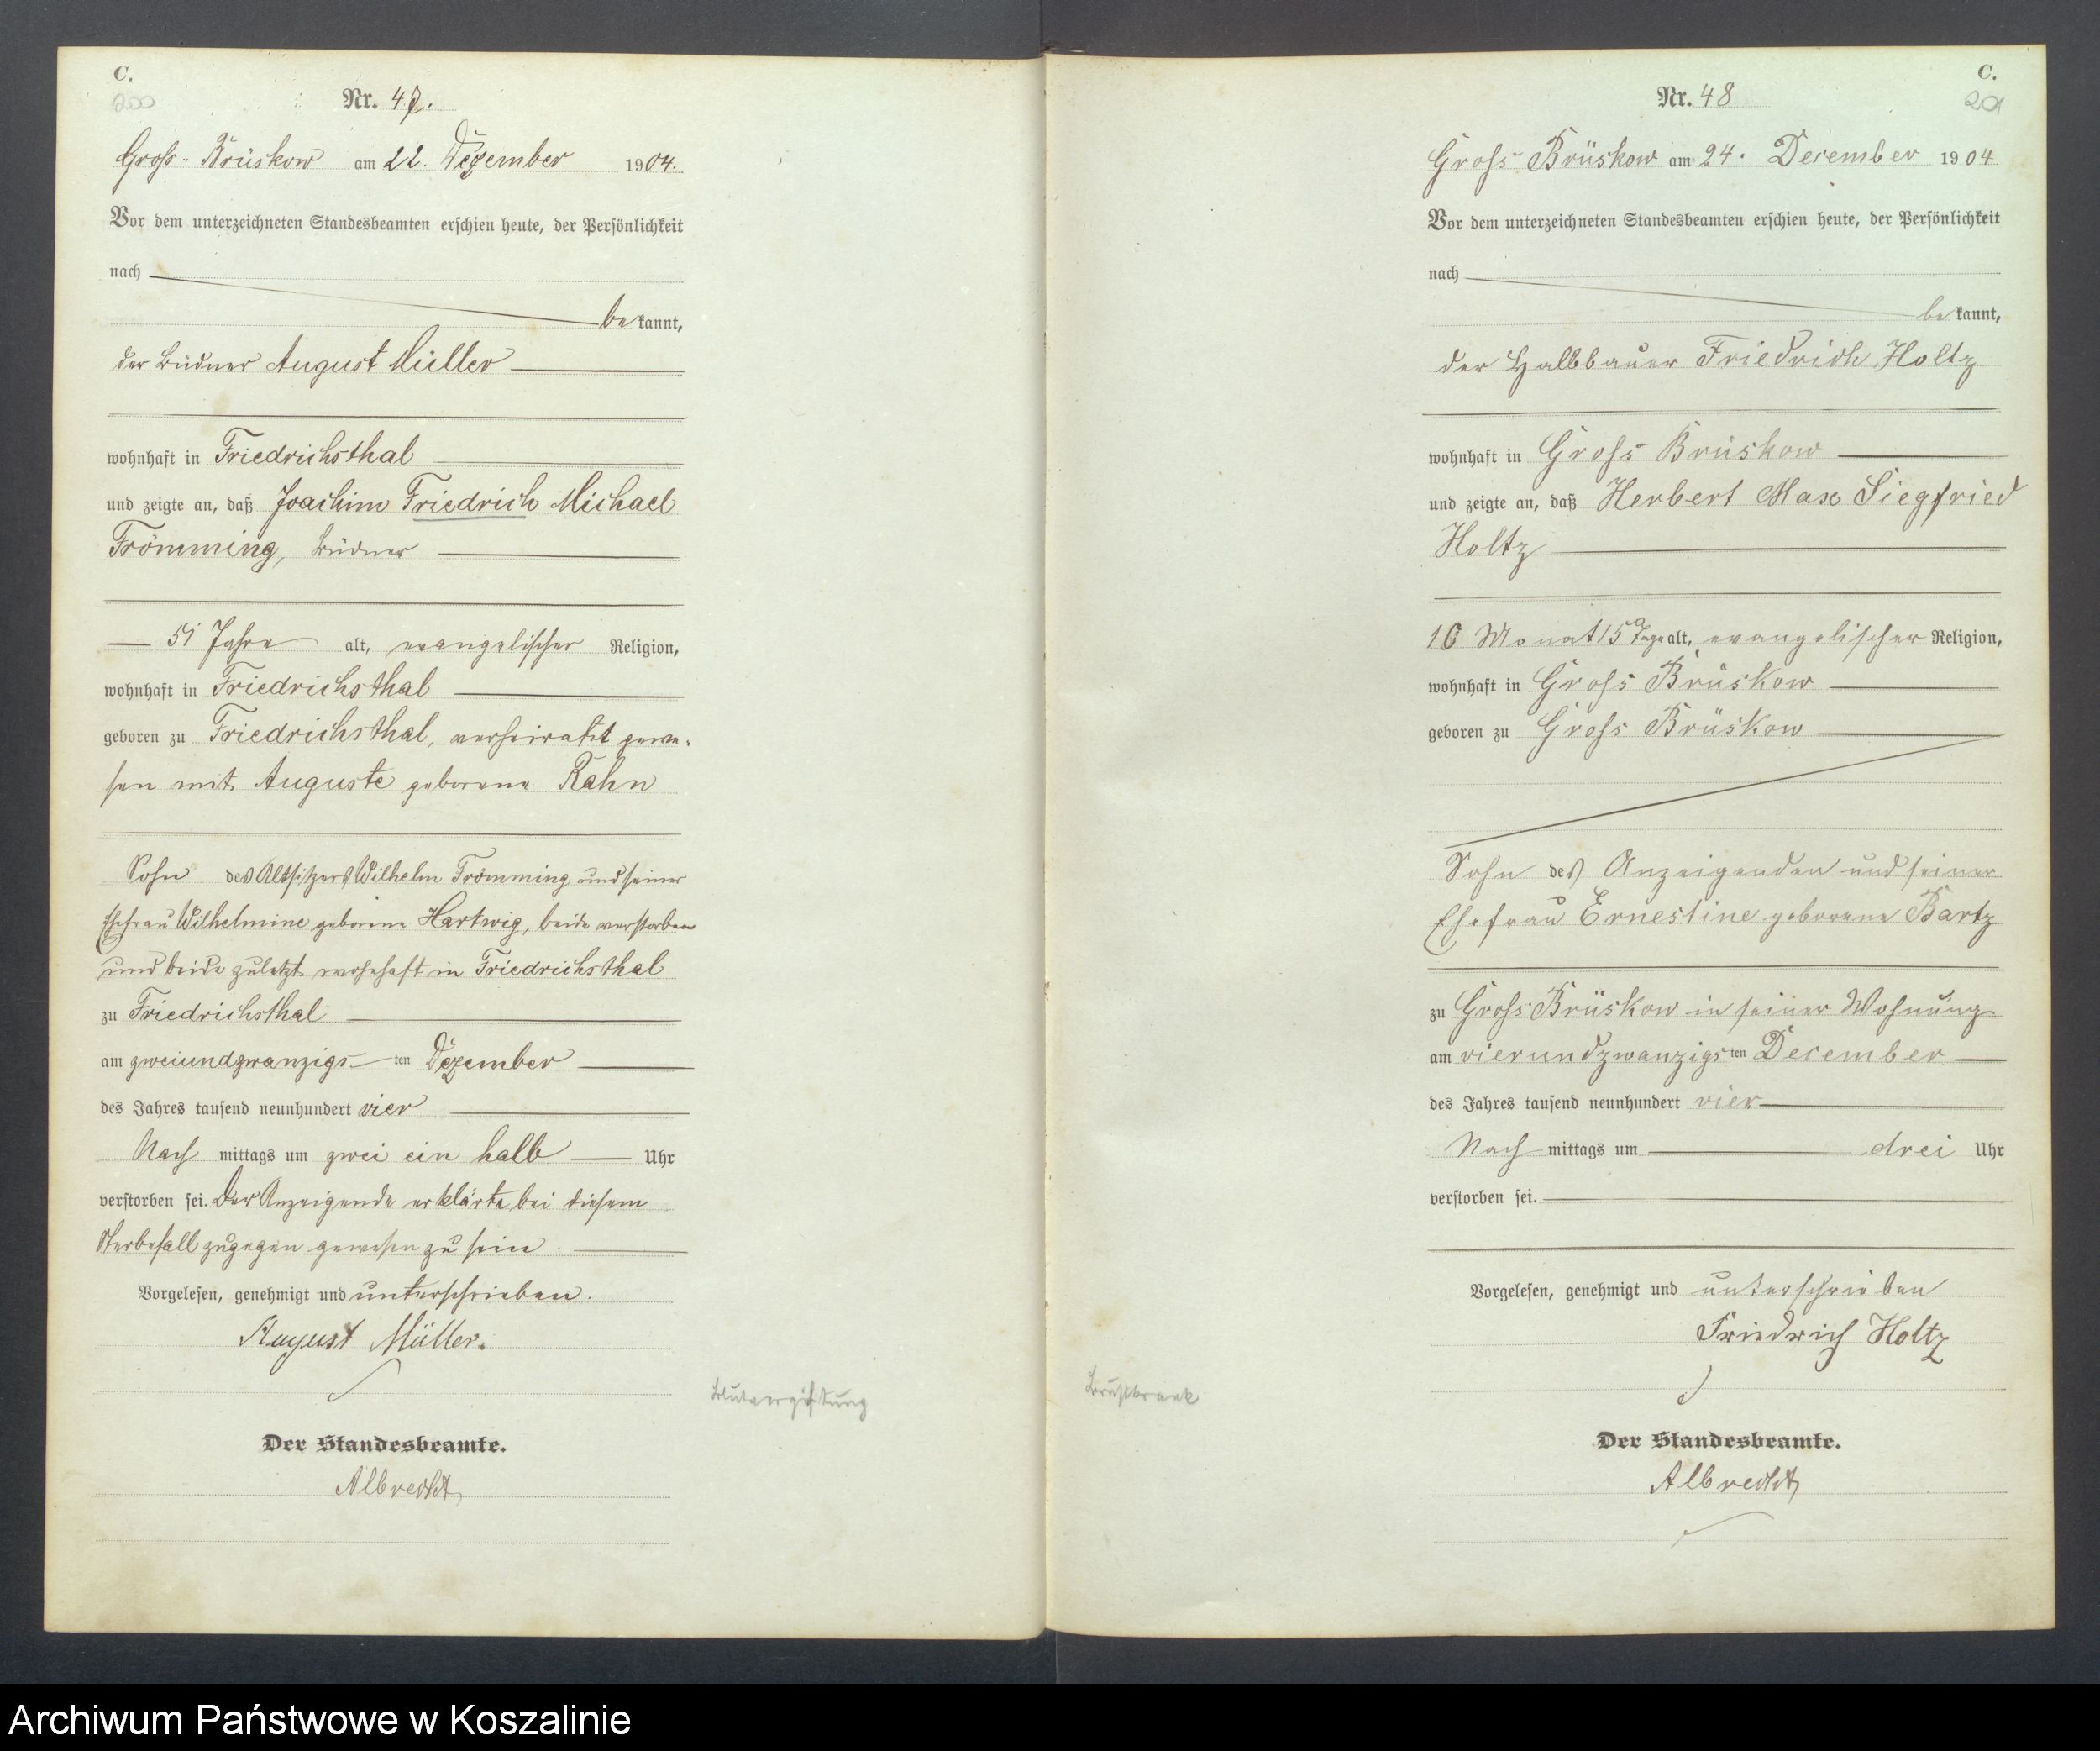 C.
200
Nr. 47.
Gross-Brüskow am 22. Dezember 1904.
Vor dem unterzeichneten Standesbeamten erschien heute, der Persönlichkeit
nach
bekannt,
der Büdner August Müller
wohnhaft in Friedrichsthal
und zeigte an, daß Joachim Friedrich Michael
Frömming, Büdner
51 Jahre alt, evangelischer Religion,
wohnhaft in Friedrichsthal
geboren zu Friedrichsthal, verheiratet gewe-
sen mit Auguste geborene Rahn
Sohn des Altsitzers Wilhelm Frömming und seiner
Ehefrau Wilhelmine geborene Hartwig, beide verstorben
und beide zuletzt wohnhaft in Friedrichsthal
zu Friedrichsthal
am zweiundzwanzigs ten Dezember
des Jahres tausend neunhundert vier
Nach mittags um zwei ein halb Uhr
verstorben sei. Der Anzeigende erklärte bei diesem
Sterbefall zugegen gewesen zu sein.
Vorgelesen, genehmigt und unterschrieben.
August Müller.
Blutvergiftung
Der Standesbeamte.
Albrecht
C.
201
Nr. 48
Gross Brüskow am 24. December 1904
Vor dem unterzeichneten Standesbeamten erschien heute, der Persönlichkeit
nach
bekannt,
der Halbbauer Friedrich Holtz
wohnhaft in Gross Brüskow
und zeigte an, daß Herbert Max Siegfried
Holtz
10 Monat 15 Tage alt, evangelischer Religion,
wohnhaft in Gross Brüskow
geboren zu Gross Brüskow
Sohn des Anzeigenden und seiner
Ehefrau Ernestine geborene Bartz
zu Gross Brüskow in seiner Wohnung
am vierundzwanzigs ten December
des Jahres tausend neunhundert vier
Nach mittags um drei Uhr
verstorben sei.
Vorgelesen, genehmigt und unterschrieben
Friedrich Holtz
Brustkrank
Der Standesbeamte.
Albrecht
Archiwum Państwowe w Koszalinie